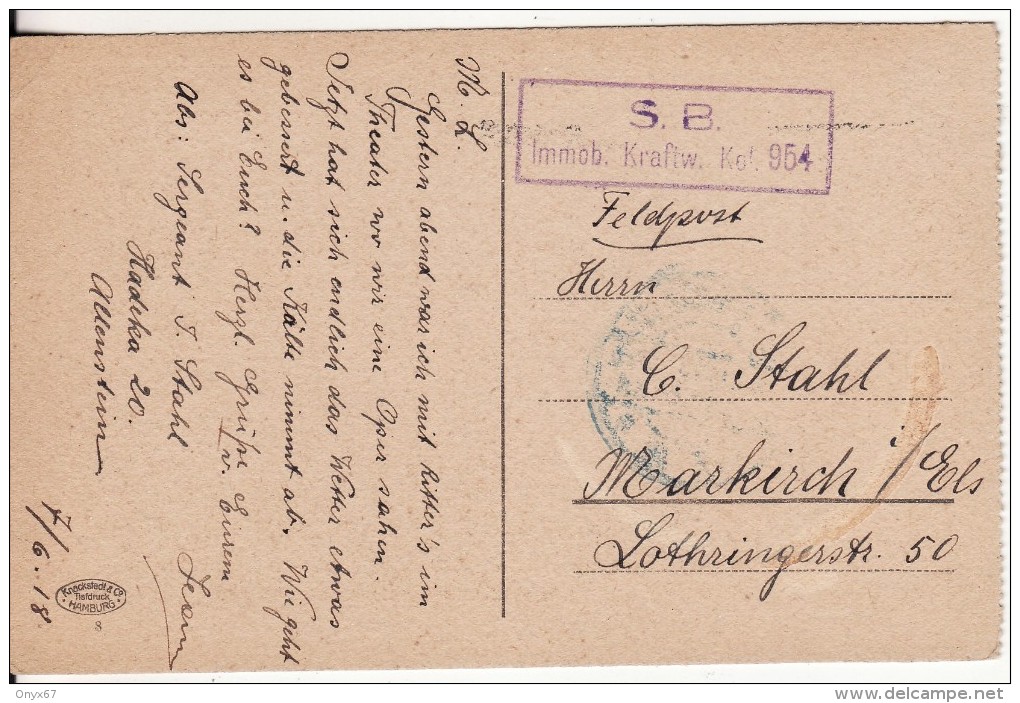 M. L.
Gestern abend war ich mit Ritter's im
Theater wo wir eine Oper sahen.
Jetzt hat sich endlich das Wetter etwas
gebessert u. die Kälte nimmt ab. Wie geht
es bei Euch? Herzl. Grüße v. Eurem
Jean
Abs: Sergeant J. Stahl
Kadeka 20.
Allenstein
7/6.18
Knackstedt & Co.
Tiefdruck
HAMBURG
S. B.
Immob. Kraftw. Kol. 954
Feldpost
Herrn
C. Stahl
Markirch i/Els
Lothringerstr. 50
Onyx67
delcampe.net